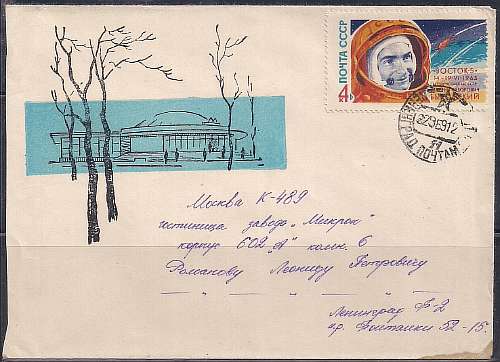 ПОЧТА СССР
4
ВОСТОК-5
ПОЧТАМТ
Москва К-489
гостиница завода „Микрон"
корпус 602 „А" комн. 6
Романову Леониду Петровичу
Ленинград Ф-2
52-15.